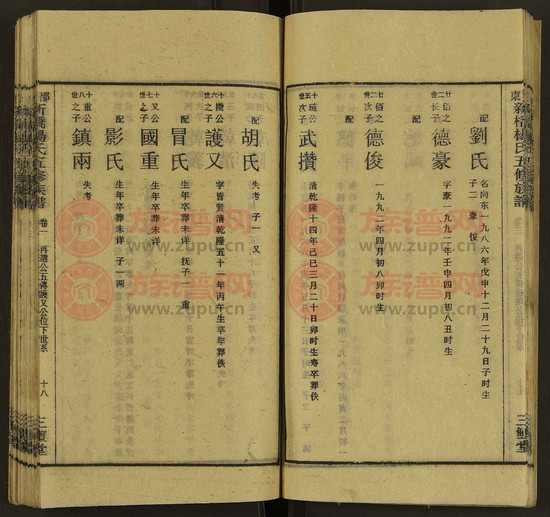 東 新橋楊氏五修族譜
三鱣堂
配 劉氏 名向东一九八六年戊申十二月二十九日子时生 子二 豪 俊
廿佰之世长子 德豪 字豪一九九二年壬申四月初八丑时生
廿佰之世次子 德俊 一九九二年四月初八卯时生
十璉公五世次子 武攒 清乾隆十四年己巳三月二十日卯时生寿卒葬佚
配 胡氏 失考 子一 又
十攒公六世之子 護又 字皆賓清乾隆五十一年丙午生卒年葬佚
配 冒氏 生年卒葬未详 抚子一 重
十又公七世之子 國重 生年卒葬未详
配 影氏 生年卒葬未详 子一 两
十重公世之子 鎮兩 失考
新橋楊氏五修族譜
卷二
再選公五傳護又公位下世系
十八
三鱣堂
族谱网
www.zupu.cn
族谱网
www.zupu.cn
族谱网
www.zupu.cn